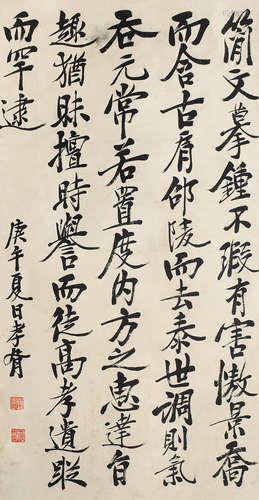 簡文摹鍾不瑕有害傲景喬
而含古肩邵陵而去泰世調則氣
吞元常若置度内方之惠達自
趣猶眛擅時譽而徒高孝遺蹤
而罕逮
庚午夏日孝胥